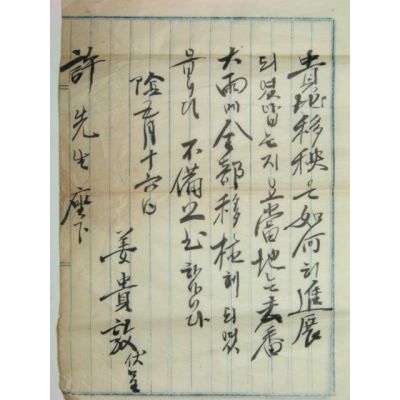 貴地移秧은如何히進展
되였음는지오當地는去番
大雨에全部移植히되였
음니다不備上書하나이다
陰五月十六日
姜貴敦伏呈
許先生座下